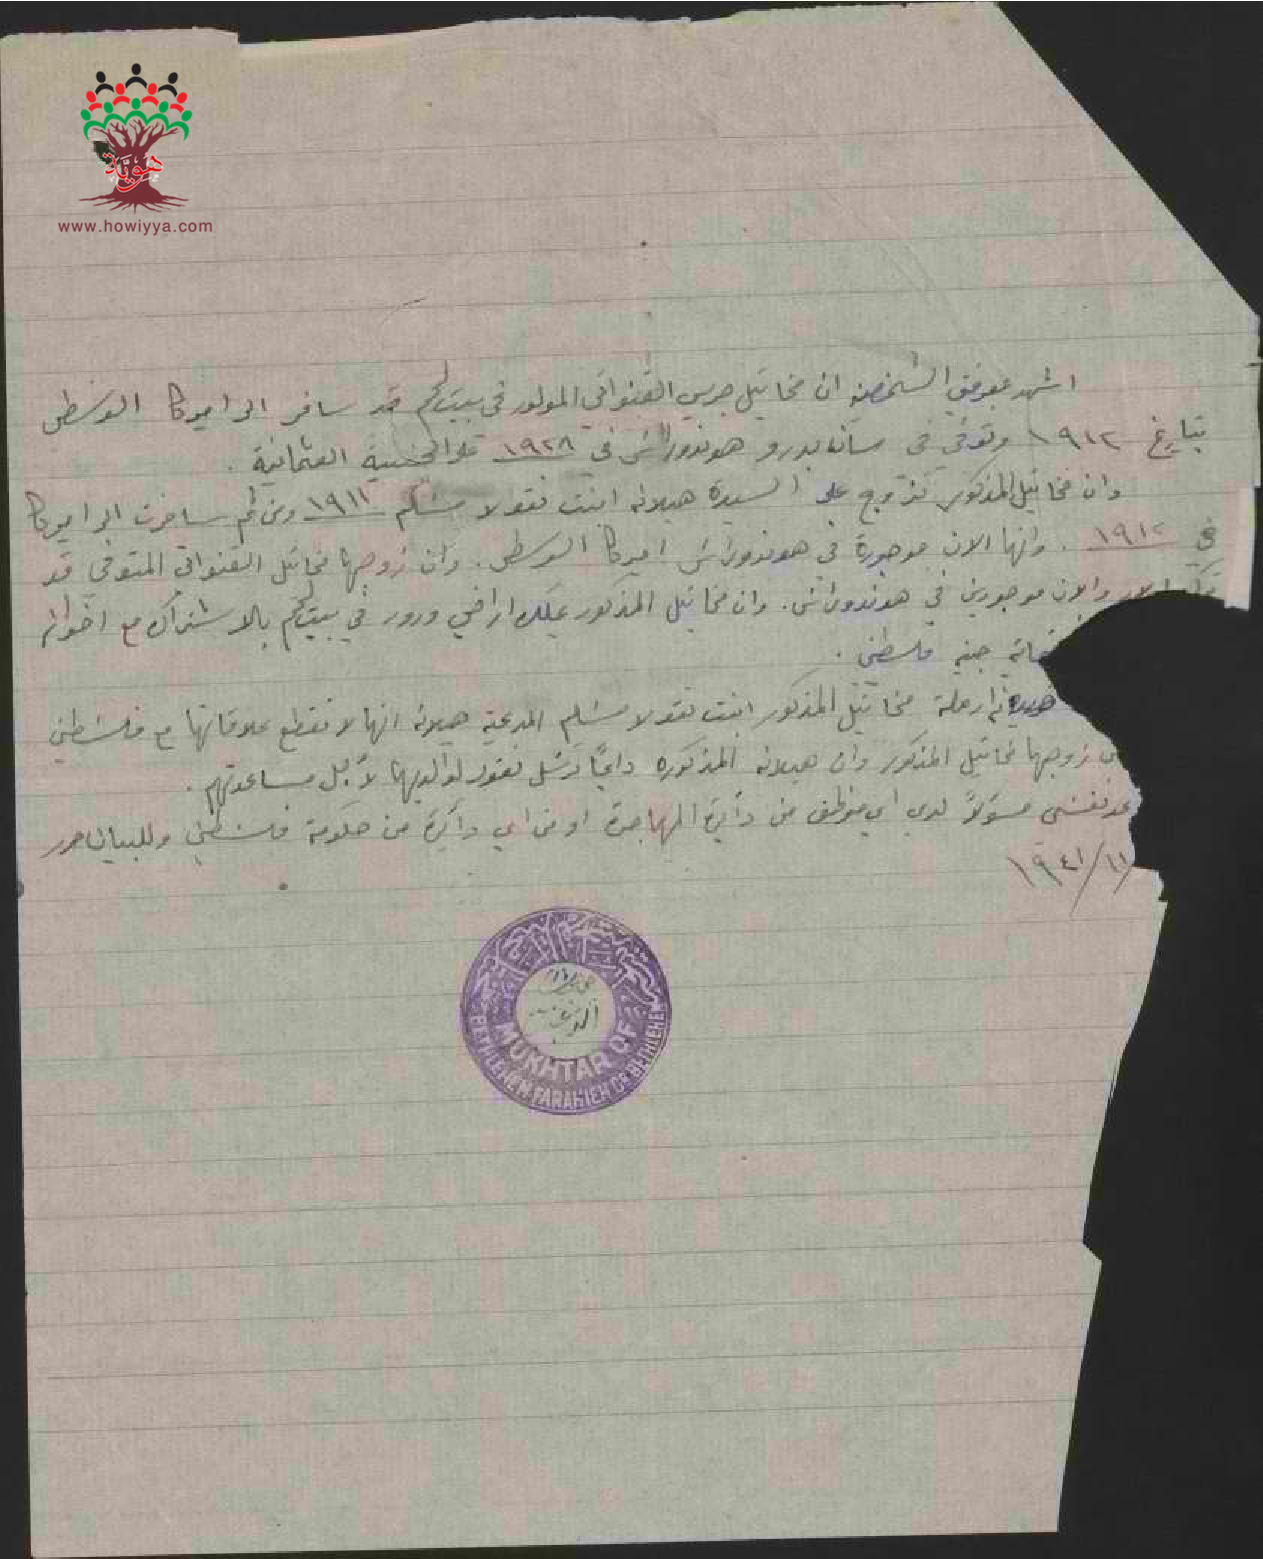 هوية
www.howiyya.com
اشهد بموجب الشخصية ان مخائيل جريس القنواتي المولود في بيت لحم قد سافر الى اميركا الوسطى
بتاريخ ١٩١٢ وتوفي في سان بدرو هوندوراس في ١٩٢٨ على الجنسية العثمانية .
وان مخائيل المذكور تزوج على السيدة هيلانه ابنت نقولا مسلم ١٩١١ ومن ثم سافرت الى اميركا
في ١٩١٢ . وانها الان موجودة في هوندوراس اميركا الوسطى . وان زوجها مخائيل القنواتي المتوفي قد
والان موجودين في هوندوراس . وان مخائيل المذكور يملك اراضي ودور في بيت لحم بالاشتراك مع اخوانه
جنيه فلسطيني .
ارملة مخائيل المذكور ابنت نقولا مسلم المدعية هيلانه انها لا تقطع علاقاتها مع فلسطين
زوجها مخائيل المذكور وان هيلانه المذكوره دائماً ترسل نقود لوالديها لأجل مساعدتهم .
نفسي مسؤلاً لدى اي موظف من دائرة المهاجرة او من اي دائرة من حكومة فلسطين وللبيان حرر
١١/١٩٤١
MUKHTAR OF
BETHLEHEM FARAHIEH OF BETHLEHEM